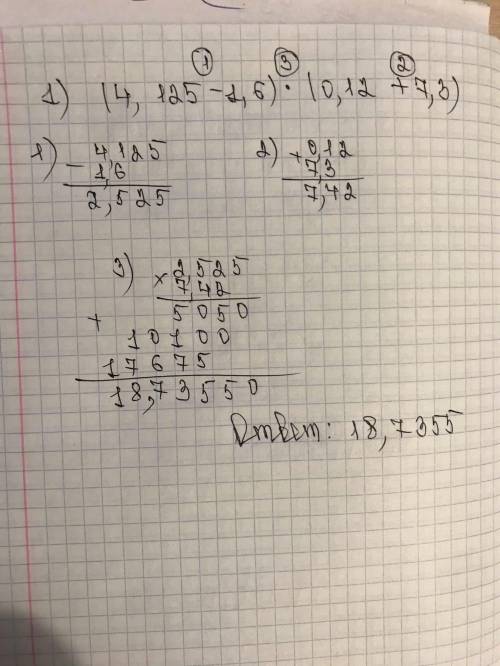 1) (4,125 - 1,6) · (0,12 + 7,3)
① ③ ②
1) 4,125
- 1,6
2,525
2) + 0,12
7,3
7,42
3) × 2,525
7,42
5050
+ 10100
17675
18,73550
Ответ: 18,7355